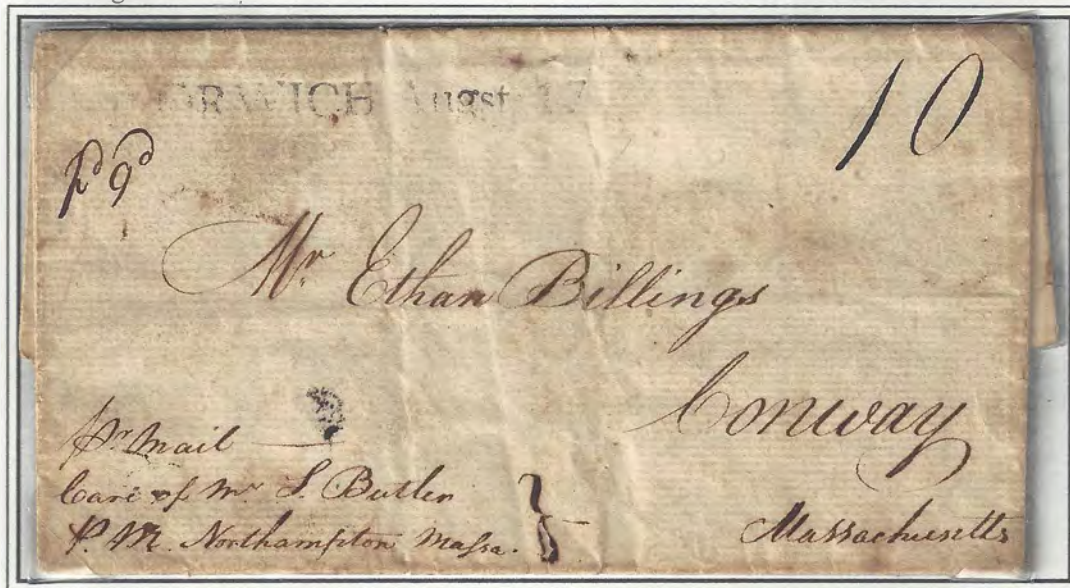 RWICH Augst 17
10
pd 9d
Mr. Ethan Billings
Conway
Massachusetts
pr Mail
Care of Mr S. Butler
P. M. Northampton Massa.